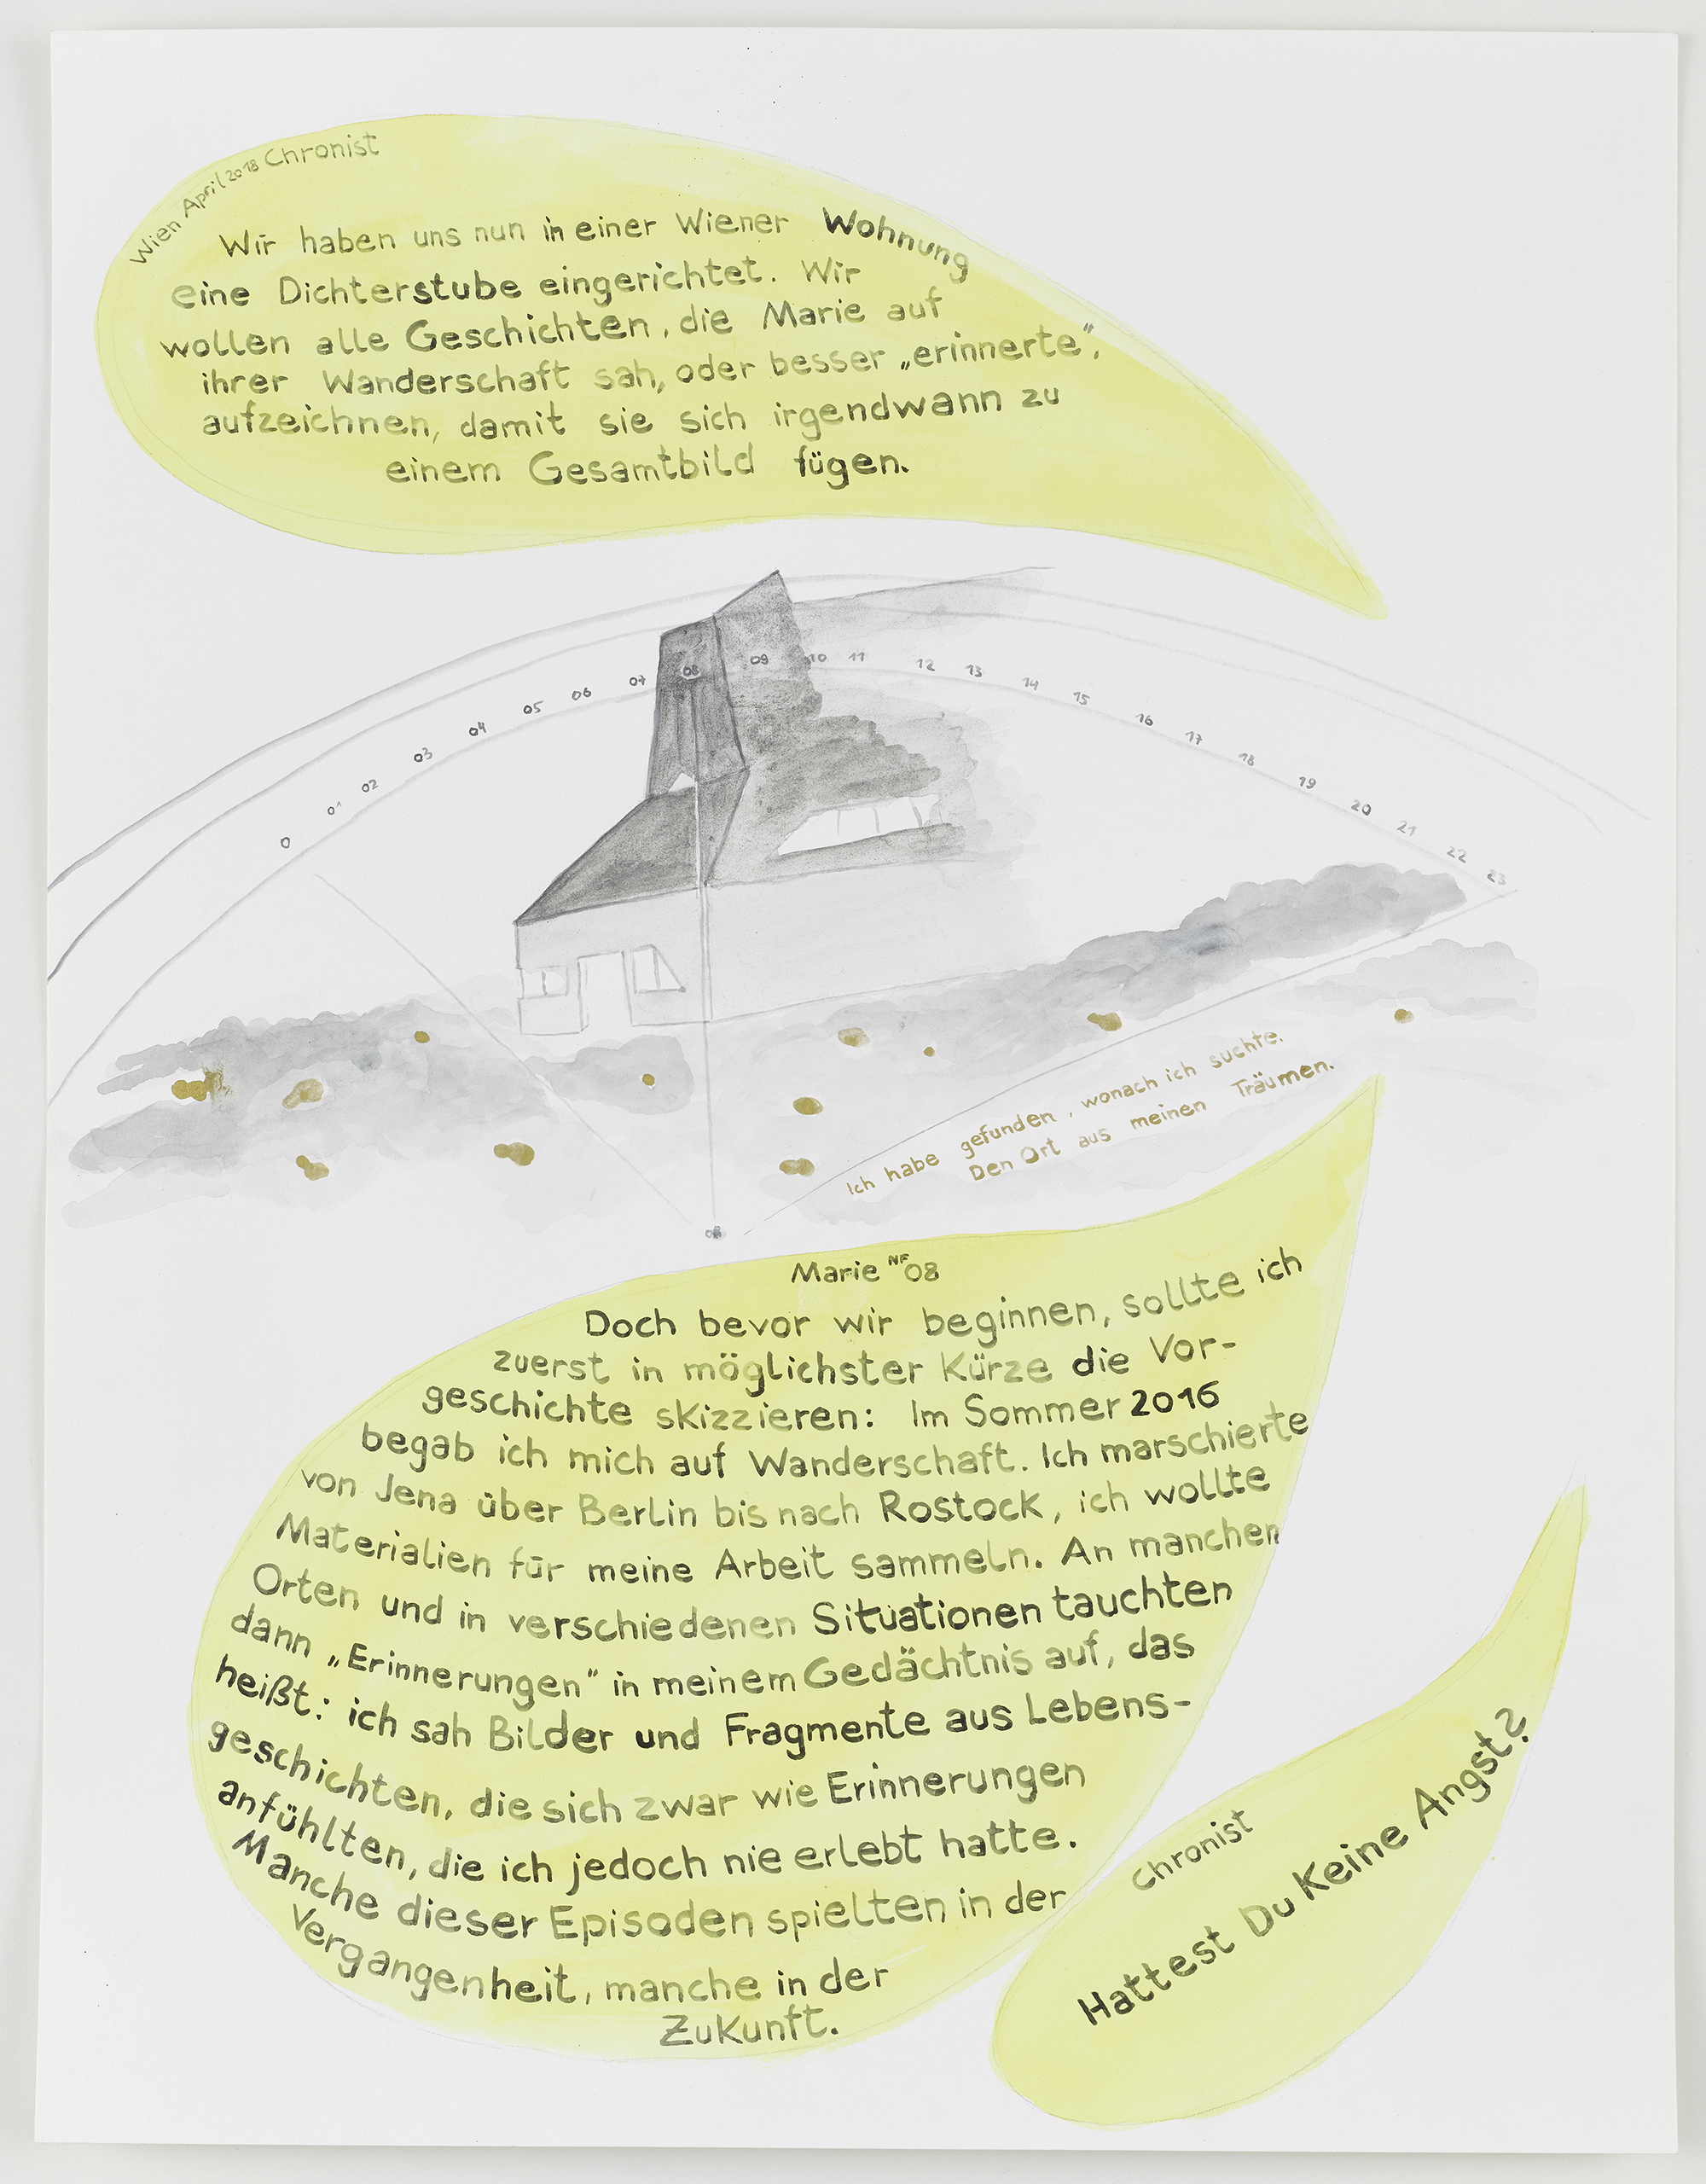 Wien April 2018 Chronist
Wir haben uns nun in einer Wiener Wohnung
eine Dichterstube eingerichtet. Wir
wollen alle Geschichten, die Marie auf
ihrer Wanderschaft sah, oder besser „erinnerte“,
aufzeichnen, damit sie sich irgendwann zu
einem Gesamtbild fügen.
0 01 02 03 04 05 06 07 08 09 10 11 12 13 14 15 16 17 18 19 20 21 22 23
Ich habe gefunden, wonach ich suchte.
Den Ort aus meinen Träumen.
Marie NF08
Doch bevor wir beginnen, sollte ich
zuerst in möglichster Kürze die Vor-
geschichte skizzieren: Im Sommer 2016
begab ich mich auf Wanderschaft. Ich marschierte
von Jena über Berlin bis nach Rostock, ich wollte
Materialien für meine Arbeit sammeln. An manchen
Orten und in verschiedenen Situationen tauchten
dann „Erinnerungen“ in meinem Gedächtnis auf, das
heißt: ich sah Bilder und Fragmente aus Lebens-
geschichten, die sich zwar wie Erinnerungen
anfühlten, die ich jedoch nie erlebt hatte.
Manche dieser Episoden spielten in der
Vergangenheit, manche in der
Zukunft.
Chronist
Hattest Du Keine Angst?